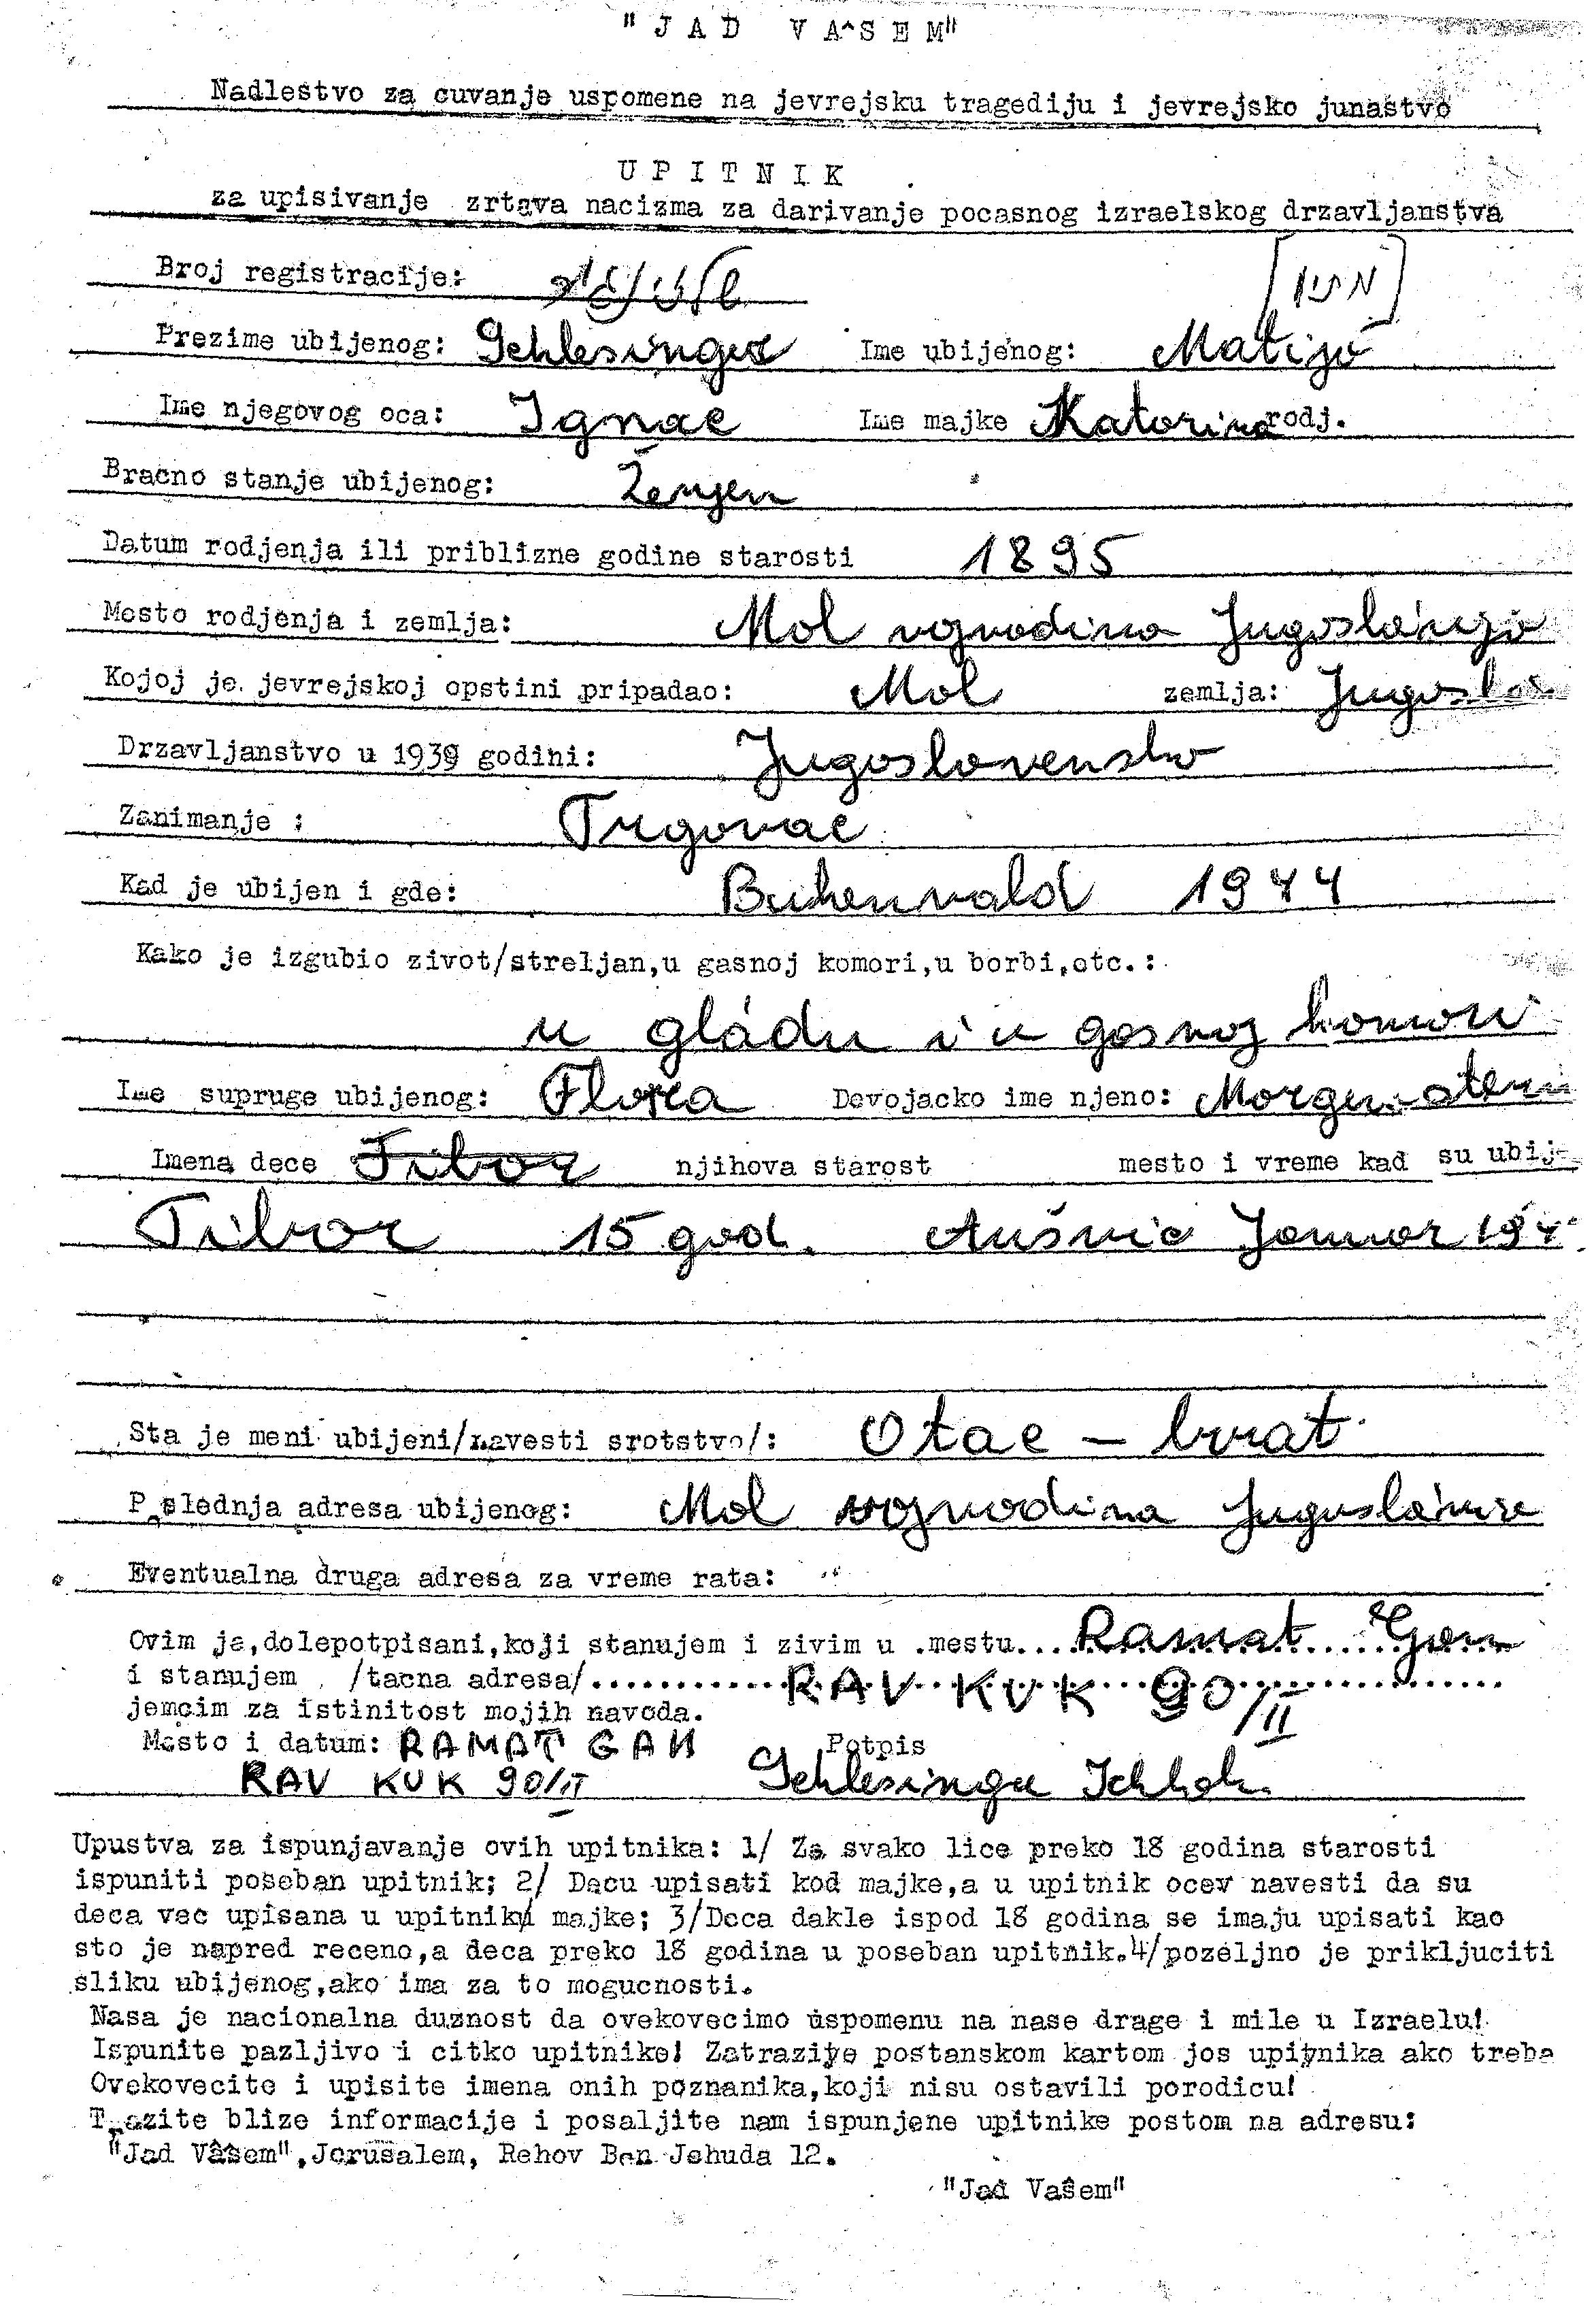 "JAD VA^SEM"
Nadlestvo za cuvanje uspomene na jevrejsku tragediju i jevrejsko junastvo
UPITNIK
za upisivanje zrtava nacizma za darivanje pocasnog izraelskog drzavljanstva
Broj registracije:
Prezime ubijenog: Schlesinger Ime ubijenog: Matija
Ime njegovog oca: Ignac Ime majke Katarina rodj.
Bracno stanje ubijenog: Ženjen
Datum rodjenja ili priblizne godine starosti 1895
Mesto rodjenja i zemlja: Mol vojvodina Jugoslavija
Kojoj je jevrejskoj opstini pripadao: Mol zemlja: Jugosla
Drzavljanstvo u 1939 godini: Jugoslovensko
Zanimanje : Trgovac
Kad je ubijen i gde: Buhenvald 1944
Kako je izgubio zivot/streljan,u gasnoj komori,u borbi,etc.:
u gladu i u gasnoj komori
Ime supruge ubijenog: Flora Devojacko ime njeno: Morgenstern
Imena dece Tibor njihova starost mesto i vreme kad su ubij
Tibor 15 god. Aušvic Januar 194
Sta je meni ubijeni/navesti srotstvo/: Otac - brat
P slednja adresa ubijenog: Mol vojvodina Jugoslavija
Eventualna druga adresa za vreme rata:
Ovim ja,dolepotpisani,koji stanujem i zivim u mestu... Ramat Gan
i stanujem /tacna adresa/............ RAV KUK 90/II
jemcim za istinitost mojih navoda.
Mesto i datum: RAMAT GAN Potpis
RAV KUK 90/II Schlesinger
Upustva za ispunjavanje ovih upitnika: 1/ Za svako lice preko 18 godina starosti
ispuniti poseban upitnik; 2/ Decu upisati kod majke,a u upitnik ocev navesti da su
deca vec upisana u upitniku majke; 3/Deca dakle ispod 18 godina se imaju upisati kao
sto je napred receno,a deca preko 18 godina u poseban upitnik.4/pozeljno je prikljuciti
sliku ubijenog,ako ima za to mogucnosti.
Nasa je nacionalna duznost da ovekovecimo uspomenu na nase drage i mile u Izraelu!
Ispunite pazljivo i citko upitnike! Zatrazite postanskom kartom jos upitnika ako treba
Ovekovecite i upisite imena onih poznanika,koji nisu ostavili porodicu!
Trazite blize informacije i posaljite nam ispunjene upitnike postom na adresu:
"Jad Vašem",Jerusalem, Rehov Ben Jehuda 12.
"Jad Vašem"